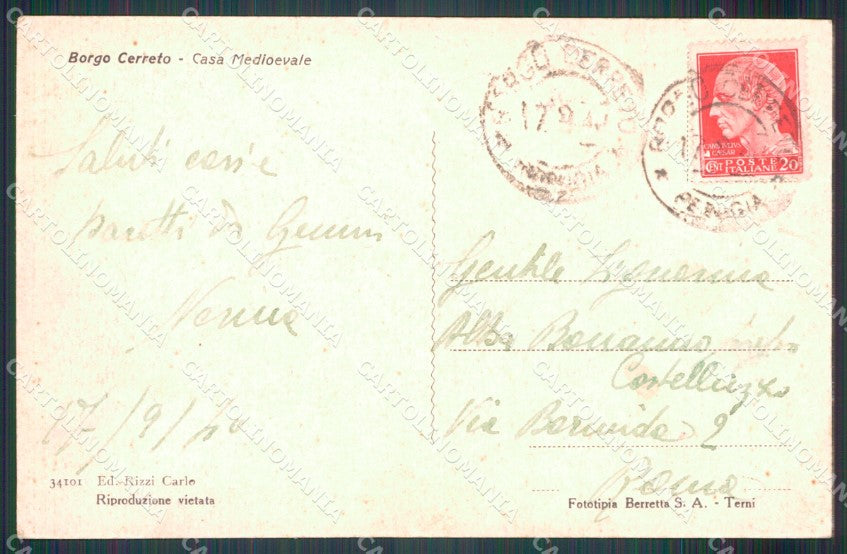 Borgo Cerreto - Casa Medioevale
BORGO CERRETO
17.9.40
PERUGIA
BORGO CERRE
PERUGIA
CAESAR
CENT POSTE ITALIANE 20
Saluti cari e
da
Nerina
17/9/40
Gentile Signorina
Alba Bonanno
Castellazzo
Via Bormida 2
Roma
34101 Ed. Rizzi Carlo
Riproduzione vietata
Fototipia Berretta S. A. - Terni
CARTOLINOMANIA